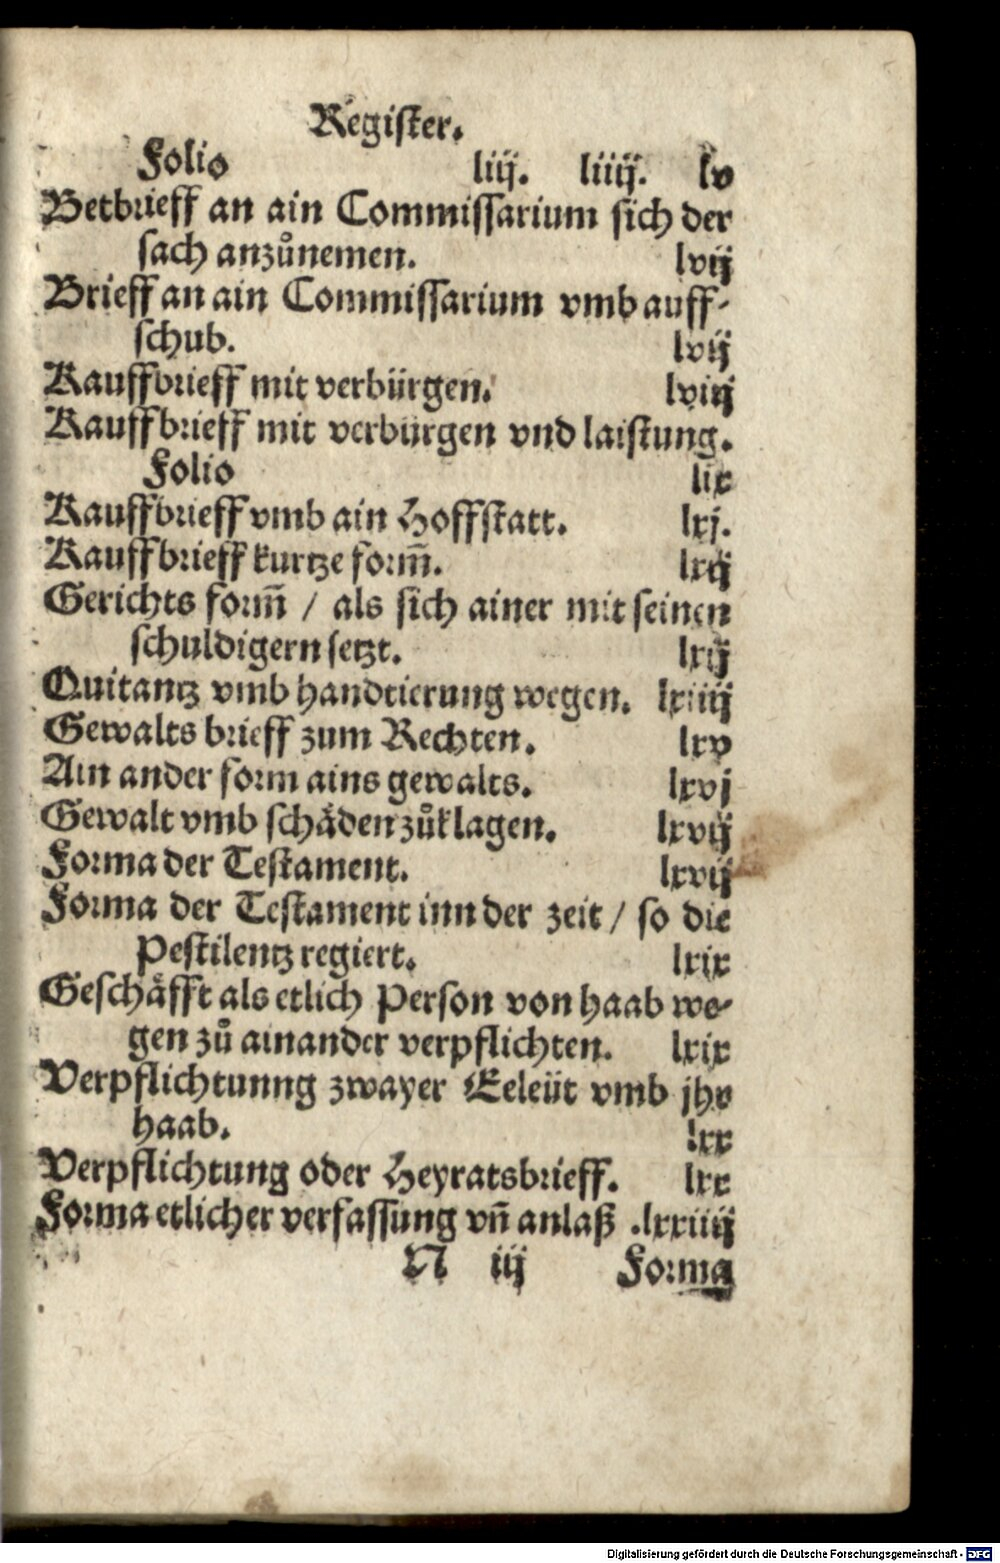 Register.
Folio liij. liiij. lv
Betbrieff an ain Commiſſarium ſich der
ſach anzůnemen. lvij
Brieff an ain Commiſſarium vmb auff-
ſchub. lvij
Kauffbrieff mit verbürgen. lviij
Kauffbrieff mit verbürgen vnd laiſtung.
Folio lix
Kauffbrieff vmb ain Hoffſtatt. lxj.
Kauffbrieff kurtze form̃. lxij
Gerichts form̃ / als ſich ainer mit ſeinen
ſchuldigern ſetzt. lxij
Quitantz vmb handtierung wegen. lxiiij
Gewalts brieff zum Rechten. lxv
Ain ander form ains gewalts. lxvj
Gewalt vmb ſchäden zůklagen. lxvij
Forma der Teſtament. lxvij
Forma der Teſtament inn der zeit / ſo die
Peſtilentz regiert. lxix
Geſchäfft als etlich Perſon von haab we-
gen zů ainander verpflichten. lxix
Verpflichtunng zwayer Eeleüt vmb jhr
haab. lxx
Verpflichtung oder Heyratsbrieff. lxx
Forma etlicher verfaſſung vñ anlaß .lxxiiij
N iij Forma
Digitalisierung gefördert durch die Deutsche Forschungsgemeinschaft - DFG